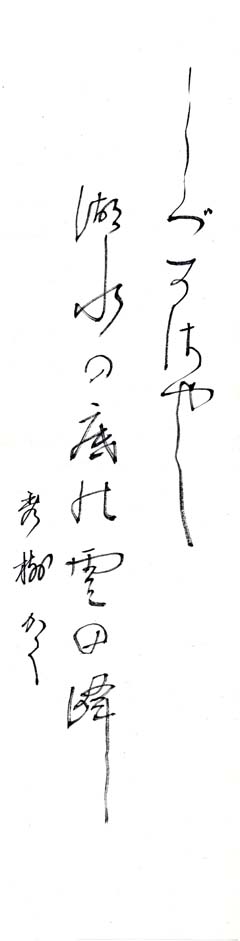 しづかさや
湖水の底の雲の峰
秀樹かく